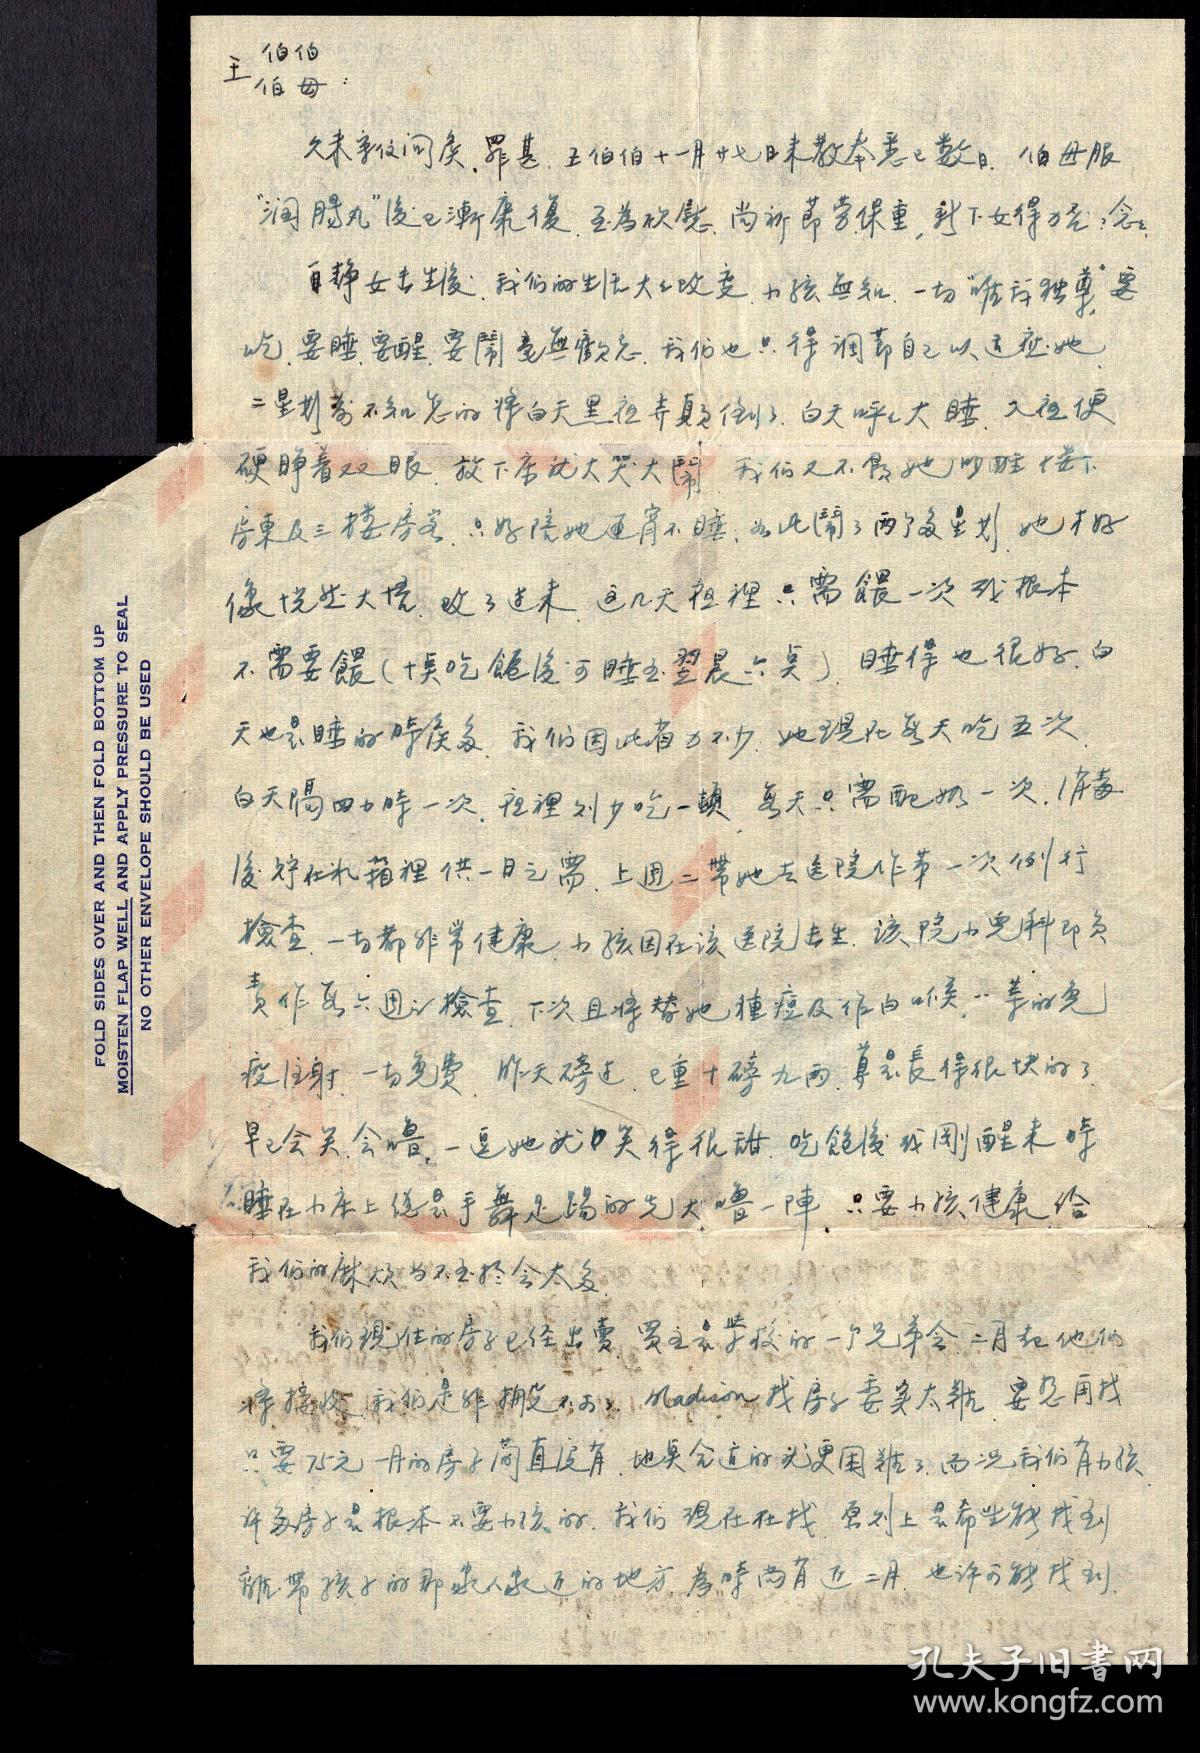 王 伯伯
伯母：
久未来信问候，罪甚。王伯伯十一月廿七日来教奉悉已数日。伯母服
“润肠丸”後已漸康復，至為欣慰。尚祈節劳保重，新下女得力否？念念。
自静女出生後，我们的生活大大改变，小孩無知，一切“唯我独尊”，要
吃，要睡，要醒，要鬧毫無觀念，我们也只得调節自己以适应她。
二星期前不知怎的将白天黑夜弄颠倒了，白天呼呼大睡，入夜便
硬睁着双眼，放下床就大哭大鬧，我们又不愿她吵醒楼下
房東及三楼房客，只好陪她通宵不睡，如此鬧了两个多星期，她才好
像恍然大悟，改了过来，这几天夜裡只需餵一次或根本
不需要餵（十点吃飽後可睡至翌晨六点），睡得也很好，白
天也是睡的時候多，我们因此省力不少，她现在每天吃五次，
白天隔四小時一次，夜裡则少吃一頓，每天只需配奶一次，消毒
後貯在冰箱裡供一日之需，上週二带她去医院作第一次例行
檢查，一切都非常健康，小孩因在该医院出生，该院小兒科即负
责作每六週之檢查，下次且将替她種痘及作白喉……等的免
疫注射，一切免費，昨天磅过，已重十磅九两，算是長得很快的了，
早已会笑，会嚕，一逗她就笑得很甜，吃飽後或剛醒来時
睡在小床上總是手舞足蹈的先大嚕一陣，只要小孩健康，给
我们的麻烦当不至於会太多。
我们现住的房子已经出賣，買主是学校的一个兄弟会，二月起他们
将接收，我们是非搬不可了，Madison找房子委实太難，要想用找
只要75元一月的房子简直没有，地点合适的就更困難了，而况我们有小孩，
许多房子是根本不要小孩的，我们现在在找，原则上是希望能找到
離带孩子的那家人家近的地方，為時尚有近二月，也许可能找到。
FOLD SIDES OVER AND THEN FOLD BOTTOM UP
MOISTEN FLAP WELL AND APPLY PRESSURE TO SEAL
NO OTHER ENVELOPE SHOULD BE USED
孔夫子旧书网
www.kongfz.com